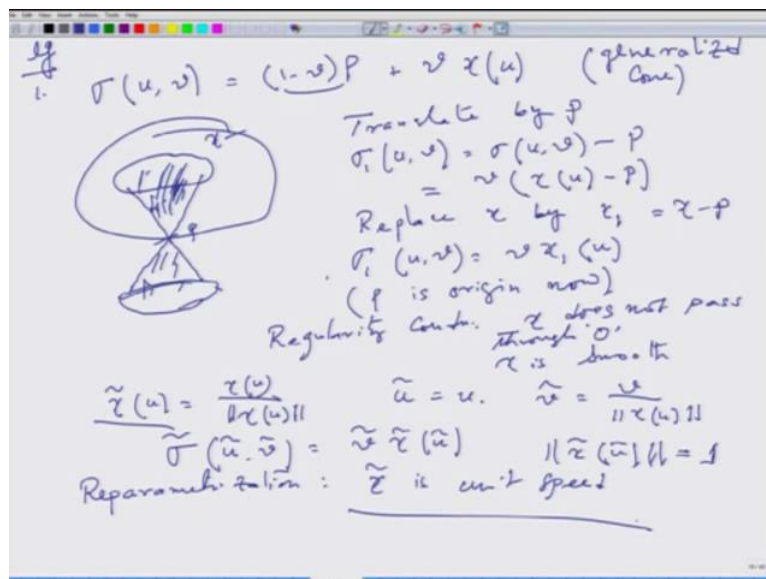 eg
1. σ(u, v) = (1-v)p + v γ(u) (generalized Cone)
Translate by p
σ₁(u, v) = σ(u, v) - p
= v (γ(u) - p)
Replace γ by γ₁ = γ - p
σ₁ (u, v) = v γ₁ (u)
(p is origin now)
Regularity Condn. γ does not pass
through '0'
γ is smooth
γ̃(u) = γ(u) / ||γ(u)|| ũ = u. ṽ = v / ||γ(u)||
σ̃ (ũ, ṽ) = ṽ γ̃(ũ) ||γ̃(ũ)|| = 1
Reparametrization : γ̃ is unit speed